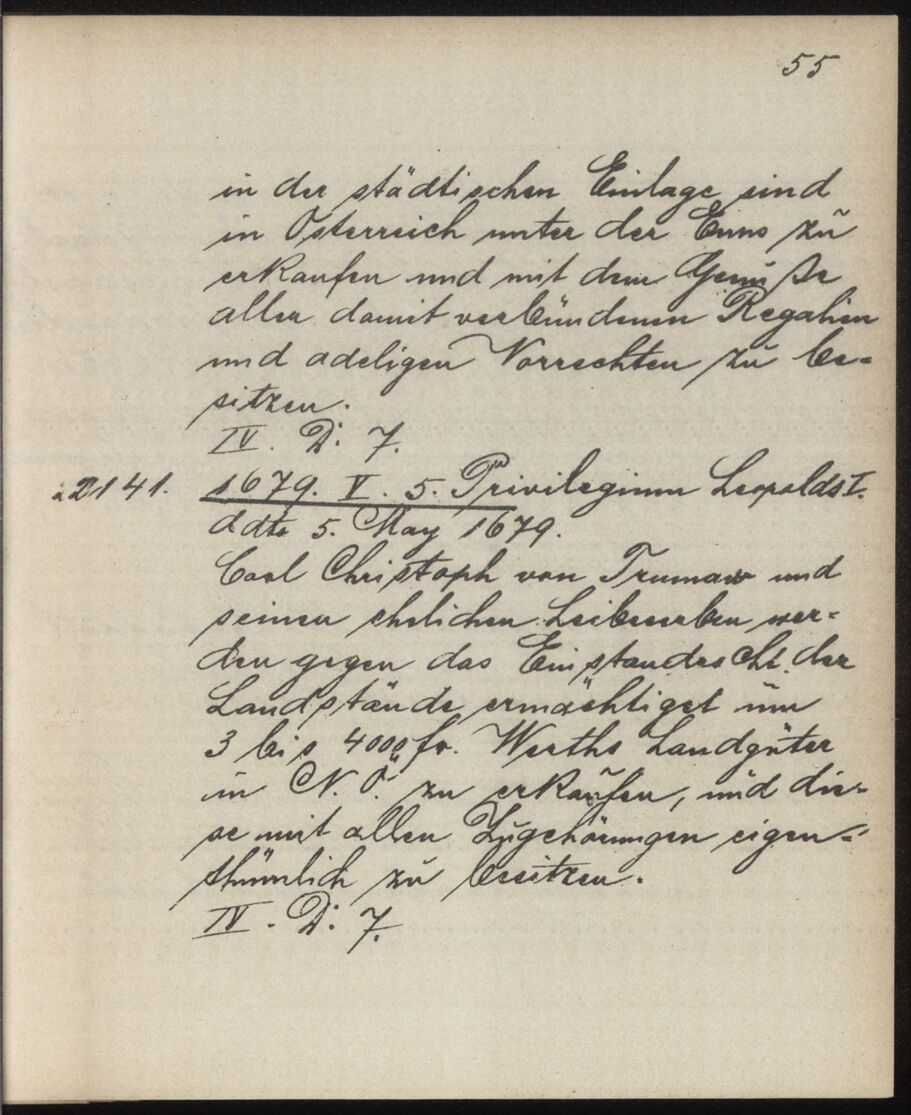 55
in der städtischen Einlage sind
in Österreich unter der Enns zu
erkaufen und mit dem Genuße
aller damit verbundenen Regalien
und adeligen Vorrechten zu be-
sitzen.
IV. D. 7.
141. 1679. V. 5. Privilegium Leopolds I.
ddto 5. May 1679.
Carl Christoph von Trumaw und
seinen ehelichen Leibeserben wer-
den gegen das Einstandrecht der
Landstände ermächtiget um
3 bis 4000 fr. Werths Landgüter
in N. Ö. zu erkaufen, und die-
se mit allen Zugehörungen eigen-
thümlich zu besitzen.
IV. D. 7.